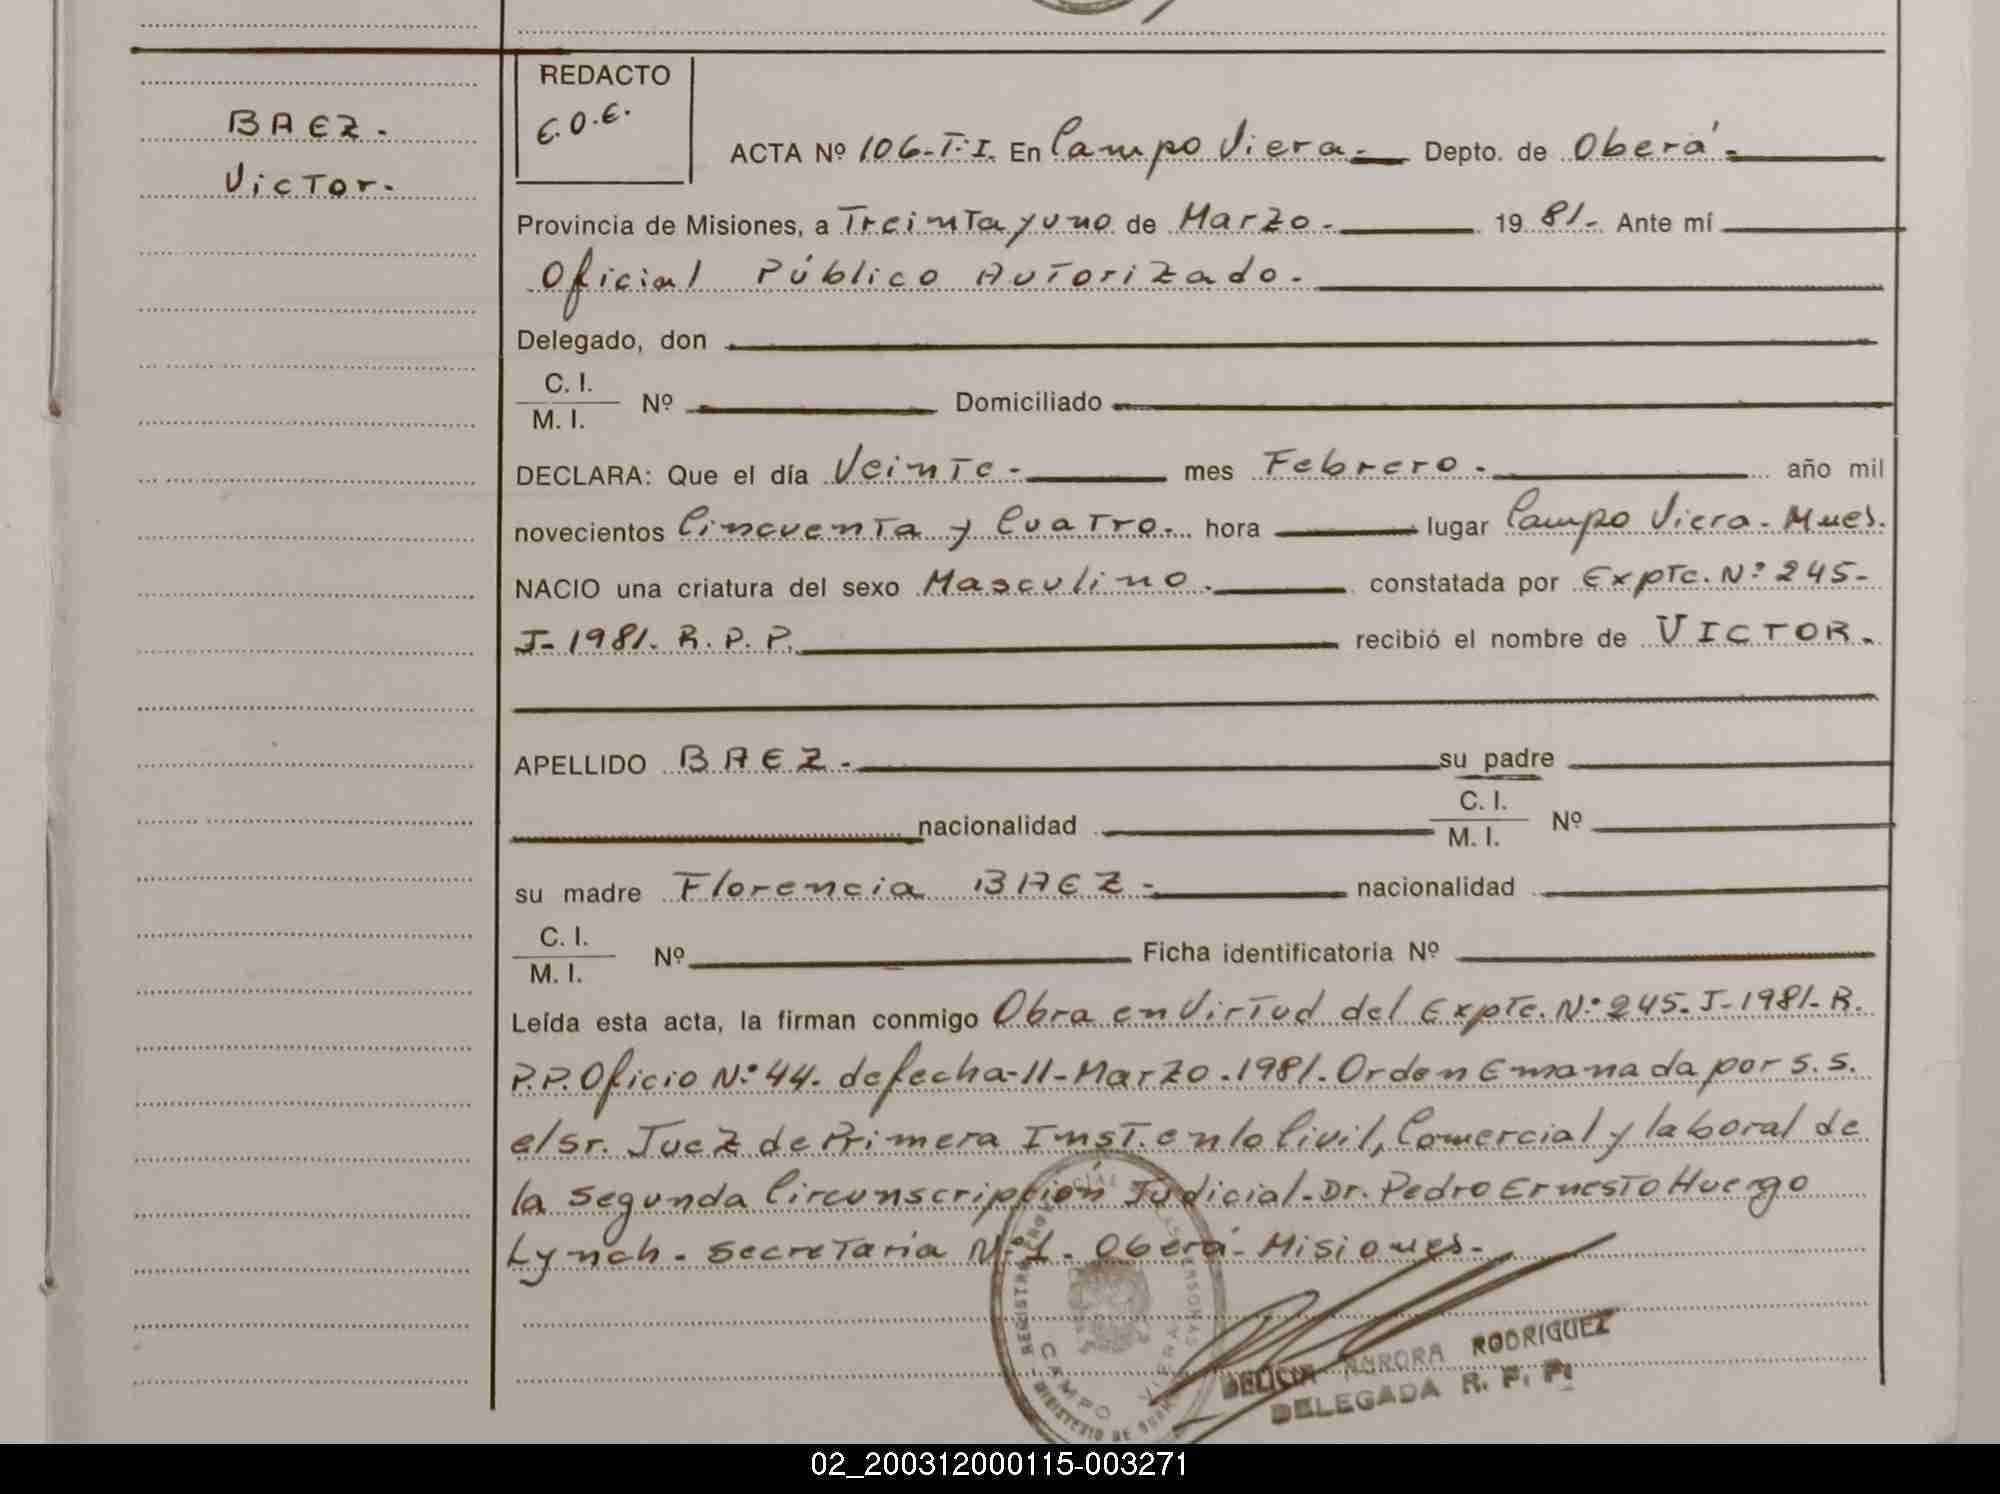 REDACTO
E.O.E.
BAEZ.
Victor.
ACTA Nº 106-T.I. En Campo Viera. Depto. de Oberá.
Provincia de Misiones, a Treinta y uno de Marzo. 1981. Ante mí
Oficial Público Autorizado.
Delegado, don
C. I.
M. I. Nº Domiciliado
DECLARA: Que el día Veinte. mes Febrero. año mil
novecientos Cincuenta y Cuatro. hora lugar Campo Viera. Mnes.
NACIO una criatura del sexo Masculino. constatada por Expte. Nº 245-
J-1981. R. P. P. recibió el nombre de VICTOR.
APELLIDO BAEZ. su padre
nacionalidad C. I.
M. I. Nº
su madre Florencia BAEZ. nacionalidad
C. I.
M. I. Nº Ficha identificatoria Nº
Leída esta acta, la firman conmigo Obra en Virtud del Expte. Nº 245. J-1981-R.
P.P. Oficio Nº 44. de fecha-11-Marzo.1981. Orden Emanada por S.S.
el Sr. Juez de Primera Inst. en lo Civil, Comercial y laboral de
la Segunda Circunscripción Judicial. Dr. Pedro Ernesto Huergo
Lynch. Secretaria Nº 1. Oberá-Misiones.
CAMPO VIERA
DELICIA AURORA RODRIGUEZ
DELEGADA R. P. P.
02_200312000115-003271